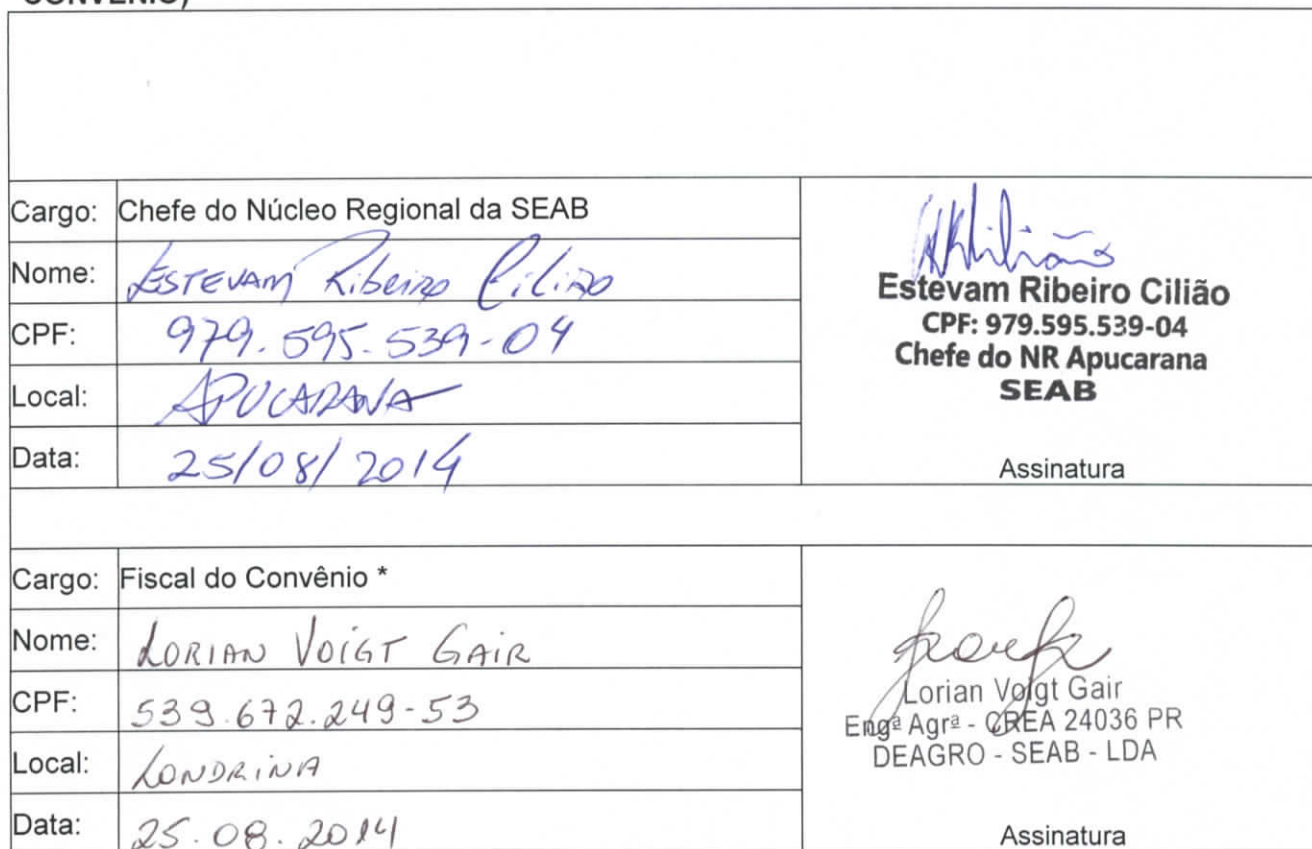 CONVÊNIO)
Cargo: Chefe do Núcleo Regional da SEAB
Nome: ESTEVAM Ribeiro Cilião
CPF: 979.595.539-04
Local: APUCARANA
Data: 25/08/2014
Estevam Ribeiro Cilião
CPF: 979.595.539-04
Chefe do NR Apucarana
SEAB
Assinatura
Cargo: Fiscal do Convênio *
Nome: LORIAN VOIGT GAIR
CPF: 539.672.249-53
Local: LONDRINA
Data: 25.08.2014
Lorian Voigt Gair
Engª Agrª - CREA 24036 PR
DEAGRO - SEAB - LDA
Assinatura